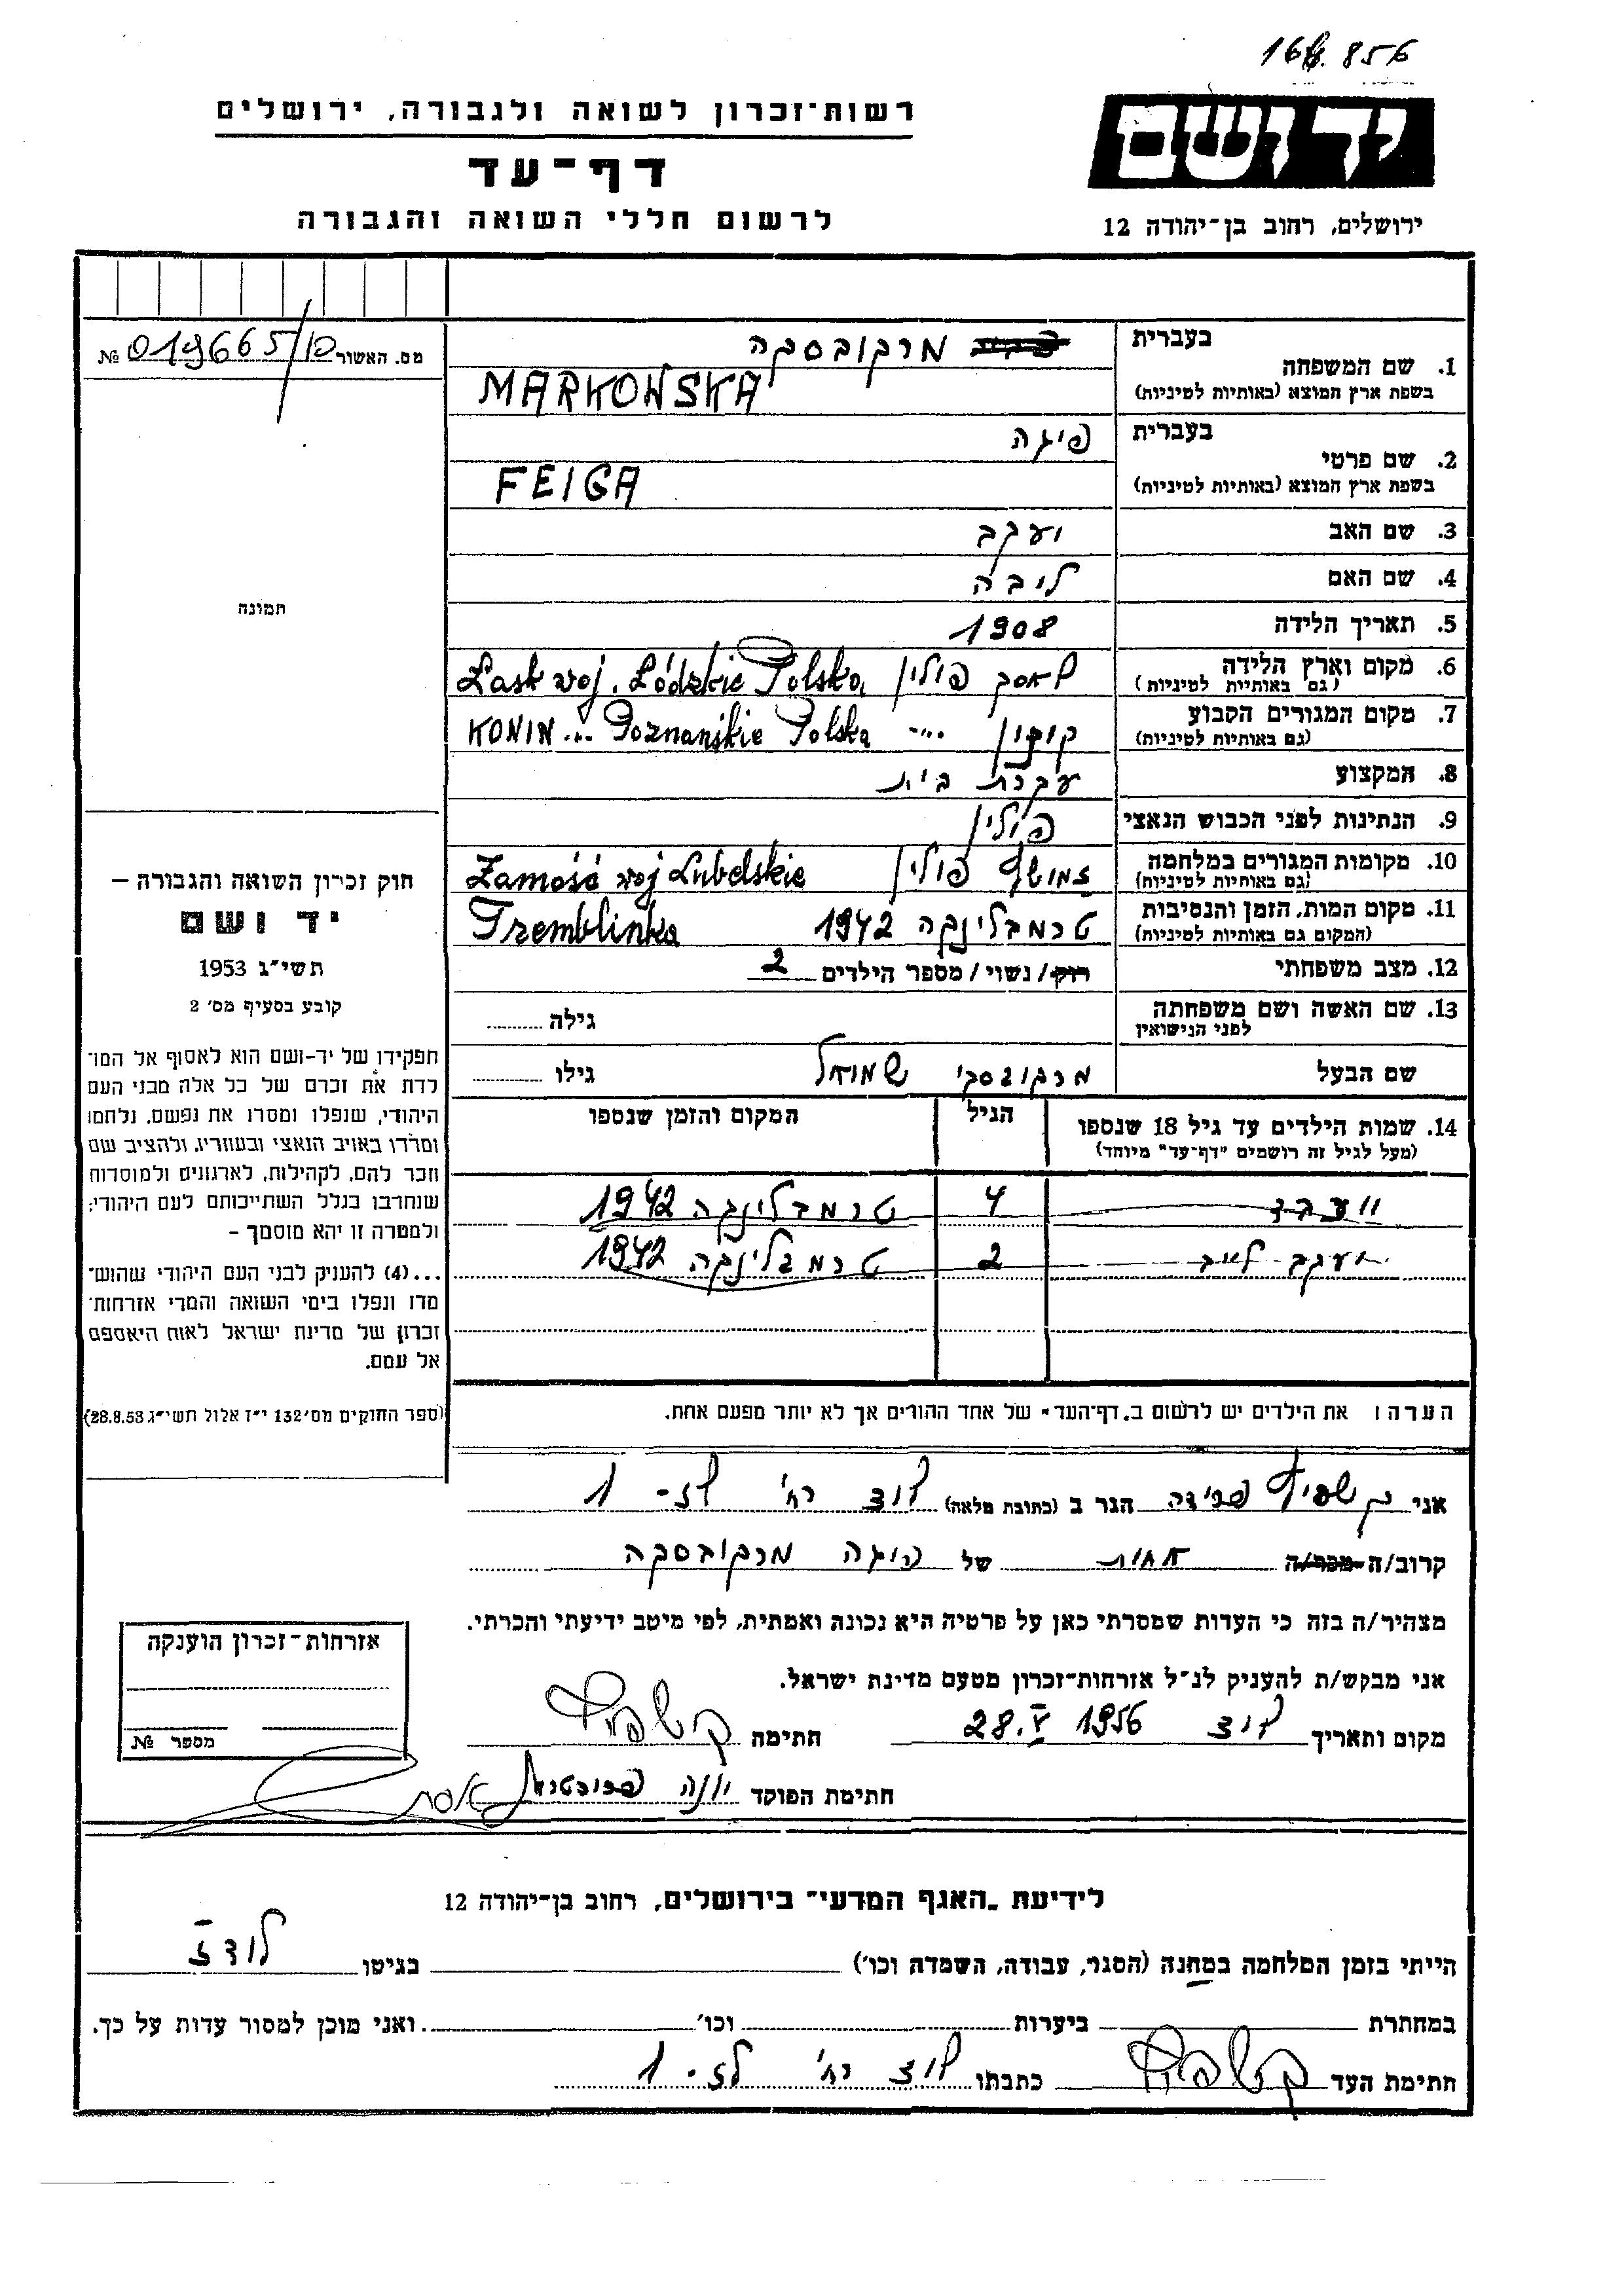 168.856
יד ושם
ירושלים, רחוב בן־יהודה 12
רשות־זכרון לשואה ולגבורה, ירושלים
דף־עד
לרשום חללי השואה והגבורה
מס. האשור 019665/10 №
בעברית
מרקובסקה
1. שם המשפחה
בשפת ארץ המוצא (באותיות לטיניות)
MARKOWSKA
בעברית
פיגה
2. שם פרטי
בשפת ארץ המוצא (באותיות לטיניות)
FEIGA
3. שם האב יעקב
4. שם האם ליבה
5. תאריך הלידה 1908
6. מקום וארץ הלידה לאסק פולין Łask woj. Łódzkie Polska
(גם באותיות לטיניות)
7. מקום המגורים הקבוע קונין KONIN ... Poznańskie Polska
(גם באותיות לטיניות)
8. המקצוע עקרת בית
9. הנתינות לפני הכבוש הנאצי פולין
10. מקומות המגורים במלחמה פולין Zamość woj Lubelskie
(גם באותיות לטיניות)
11. מקום המות, הזמן והנסיבות טרמבלינקה 1942 Tremblinka
(המקום גם באותיות לטיניות)
12. מצב משפחתי רוק/נשוי/מספר הילדים 2
13. שם האשה ושם משפחתה גילה
לפני הנישואין
שם הבעל מרקובסקי שמואל גילו
14. שמות הילדים עד גיל 18 שנספו הגיל המקום והזמן שנספו
(מעל לגיל זה רושמים "דף־עד" מיוחד)
4 טרמבלינקה 1942
יעקב לייב 2 טרמבלינקה 1942
תמונה
חוק זכרון השואה והגבורה –
יד ושם
תשי"ג 1953
קובע בסעיף מס׳ 2
תפקידו של יד-ושם הוא לאסוף אל המו־
לדת את זכרם של כל אלה מבני העם
היהודי, שנפלו ומסרו את נפשם, נלחמו
ומרדו באויב הנאצי ובעוזריו, ולהציב שם
וזכר להם, לקהילות, לארגונים ולמוסדות
שנחרבו בגלל השתייכותם לעם היהודי;
ולמטרה זו יהא מוסמך –
...(4) להעניק לבני העם היהודי שהוש־
מדו ונפלו בימי השואה והמרי אזרחות־
זכרון של מדינת ישראל לאות היאספם
אל עמם.
(ספר החוקים מס׳ 132 י"ז אלול תשי"ג 28.8.53)
הערה: את הילדים יש לרשום ב„דף־העד" של אחד ההורים אך לא יותר מפעם אחת.
אני פרידה הגר ב (כתובת מלאה) לוד רח׳ 1
קרוב/ה מכר/ה אחות של פיגה מרקובסקה
מצהיר/ה בזה כי העדות שמסרתי כאן על פרטיה היא נכונה ואמתית, לפי מיטב ידיעתי והכרתי.
אני מבקש/ת להעניק לנ"ל אזרחות־זכרון מטעם מדינת ישראל.
מקום ותאריך לוד 28.V 1956 חתימה
חתימת הפוקד יונה
אזרחות־זכרון הוענקה
מספר №
לידיעת „האגף המדעי" בירושלים, רחוב בן־יהודה 12
הייתי בזמן המלחמה במחנה (הסגר, עבודה, השמדה וכו׳) בגיטו לודז
במחתרת ביערות וכו׳ ואני מוכן למסור עדות על כך.
חתימת העד כתבתו לוד רח׳ 1